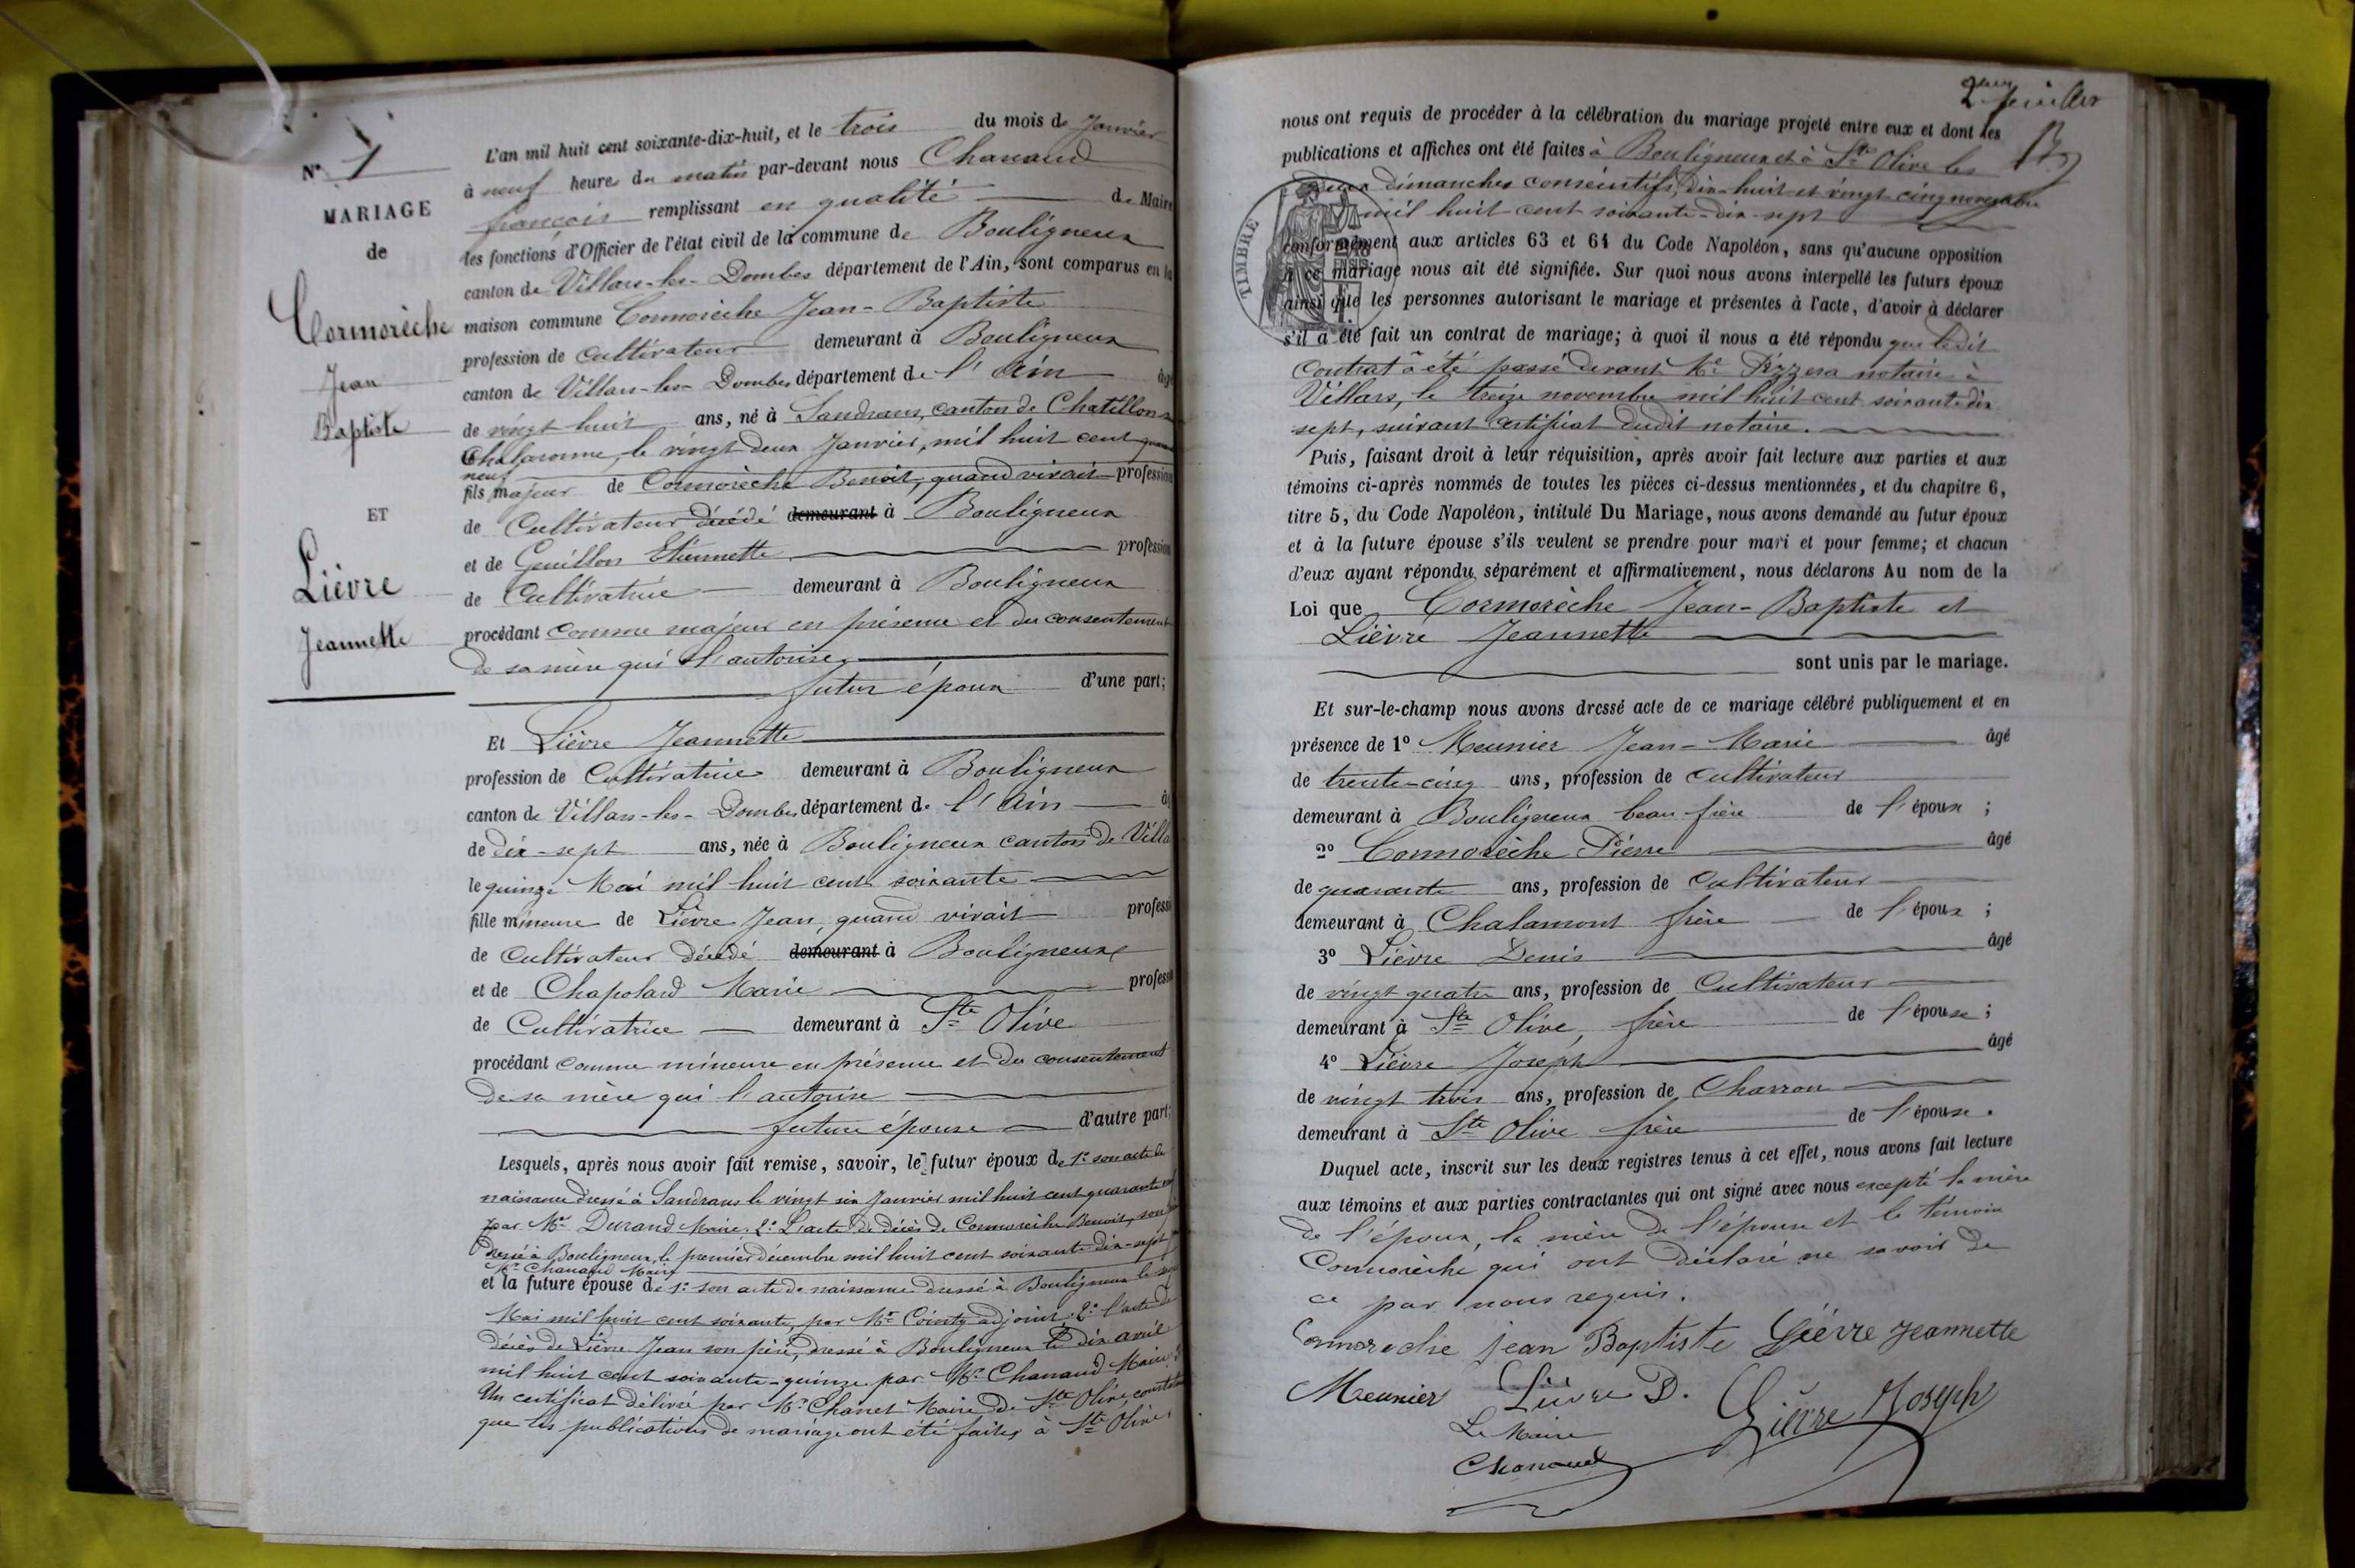 N° 1
MARIAGE
de
Cormorèche
Jean
Baptiste
ET
Lièvre
Jeannette
L'an mil huit cent soixante-dix-huit, et le trois du mois de Janvier
à neuf heure du matin par-devant nous Chanaud
françois remplissant en qualité de Maire
les fonctions d'Officier de l'état civil de la commune de Bouligneux
canton de Villars-les-Dombes département de l'Ain, sont comparus en la
maison commune Cormorèche Jean-Baptiste
profession de Cultivateur demeurant à Bouligneux
canton de Villars-les-Dombes département de l'Ain âgé
de vingt huit ans, né à Sandrans, canton de Chatillon s
Chalaronne, le vingt deux Janvier, mil huit cent quarante
neuf
fils majeur de Cormorèche Benoit, quand vivait profession
de Cultivateur décédé demeurant à Bouligneux
et de Guillon Etiennette profession
de Cultivatrice demeurant à Bouligneux
procédant comme majeur en présence et du consentement
de sa mère qui l'autorise
futur époux d'une part;
Et Lièvre Jeannette
profession de Cultivatrice demeurant à Bouligneux
canton de Villars-les-Dombes département de l'Ain âg
de dix-sept ans, née à Bouligneux canton de Villa
le quinze Mai mil huit cent soixante
fille mineure de Lièvre Jean, quand vivait professi
de Cultivateur décédé demeurant à Bouligneux
et de Chapolard Marie profess
de Cultivatrice demeurant à Ste Olive
procédant comme mineure en présence et du consentement
de sa mère qui l'autorise
future épouse d'autre part;
Lesquels, après nous avoir fait remise, savoir, le futur époux de 1° son acte de
naissance dressé à Sandrans le vingt six Janvier mil huit cent quarante
par Mr Durand Maire. 2° L'acte de décès de Cormorèche Benoit, son
dressé à Bouligneux, le premier décembre mil huit cent soixante-dix-sept
Mr Chanaud Maire
et la future épouse de 1° son acte de naissance dressé à Bouligneux le
Mai mil huit cent soixante, par Mr Cointy adjoint. 2° l'acte de
décès de Lièvre Jean son père, dressé à Bouligneux le dix avril
mil huit cent soixante-quinze par Mr Chanaud Maire 3°
Un certificat délivré par Mr Chanel Maire de Ste Olive,
que les publications de mariage ont été faites à Ste Olive.
2eme feuillet
nous ont requis de procéder à la célébration du mariage projeté entre eux et dont les
publications et affiches ont été faites à Bouligneux et à Ste Olive les
deux dimanches consécutifs, dix-huit et vingt-cinq novembre
mil huit cent soixante-dix-sept
TIMBRE
conformément aux articles 63 et 64 du Code Napoléon, sans qu'aucune opposition
à ce mariage nous ait été signifiée. Sur quoi nous avons interpellé les futurs époux
ainsi que les personnes autorisant le mariage et présentes à l'acte, d'avoir à déclarer
s'il a été fait un contrat de mariage; à quoi il nous a été répondu que ledit
Contrat a été passé devant Me Pizzera notaire à
Villars, le treize novembre mil huit cent soixante dix
sept, suivant certificat dudit notaire.
Puis, faisant droit à leur réquisition, après avoir fait lecture aux parties et aux
témoins ci-après nommés de toutes les pièces ci-dessus mentionnées, et du chapitre 6,
titre 5, du Code Napoléon, intitulé Du Mariage, nous avons demandé au futur époux
et à la future épouse s'ils veulent se prendre pour mari et pour femme; et chacun
d'eux ayant répondu séparément et affirmativement, nous déclarons Au nom de la
Loi que Cormorèche Jean-Baptiste et
Lièvre Jeannette
sont unis par le mariage.
Et sur-le-champ nous avons dressé acte de ce mariage célébré publiquement et en
présence de 1° Meunier Jean-Marie âgé
de trente-cinq ans, profession de cultivateur
demeurant à Bouligneux beau frère de l'époux ;
2° Cormorèche Pierre âgé
de quarante ans, profession de Cultivateur
demeurant à Chalamont frère de l'époux ;
3° Lièvre Denis âgé
de vingt quatre ans, profession de Cultivateur
demeurant à Ste Olive, frère de l'épouse ;
4° Lièvre Joseph âgé
de vingt trois ans, profession de Charron
demeurant à Ste Olive frère de l'épouse.
Duquel acte, inscrit sur les deux registres tenus à cet effet, nous avons fait lecture
aux témoins et aux parties contractantes qui ont signé avec nous excepté la mère
de l'époux, la mère de l'épouse et le témoin
Cormorèche qui ont déclaré ne savoir de
ce par nous requis.
Cormoreche jean Baptiste Lièvre Jeannette
Meunier Lièvre D. Lièvre Joseph
Le Maire
Chanaud